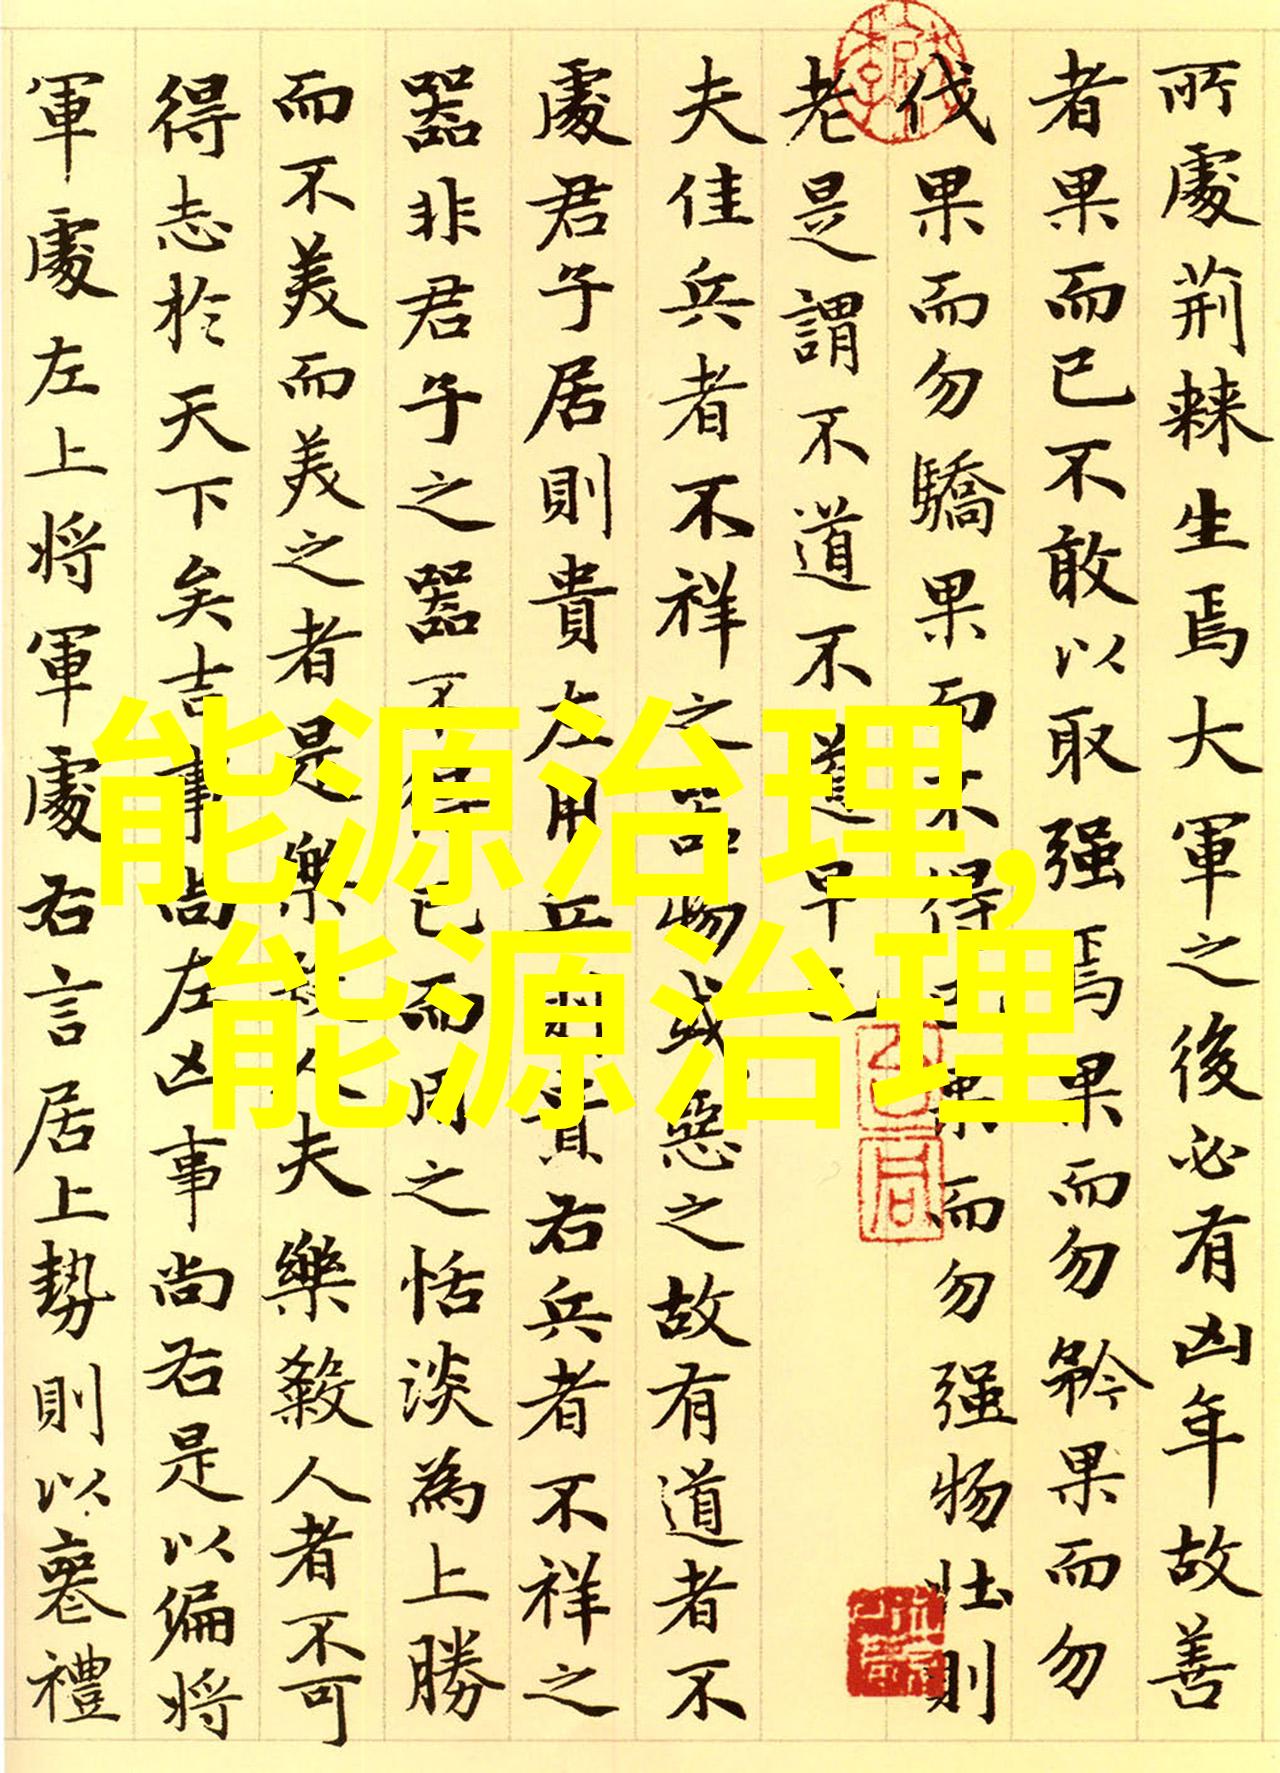 所處荊棘生焉大軍之後必有凶年故善
者果而已不敢以取强焉果而勿矜果而勿
伐果而勿驕果而不得已果而勿强物壮則
老是謂不道不道早已
夫佳兵者不祥之器物或惡之故有道者不
處君子居則貴左用兵則貴右兵者不祥之
器非君子之器不得已而用之恬淡為上勝
而不美而美之者是樂殺人夫樂殺人者不可
得志於天下矣吉事尚左凶事尚右是以偏将
軍處左上将軍處右言居上勢則以喪禮
能源治理,
能源治理